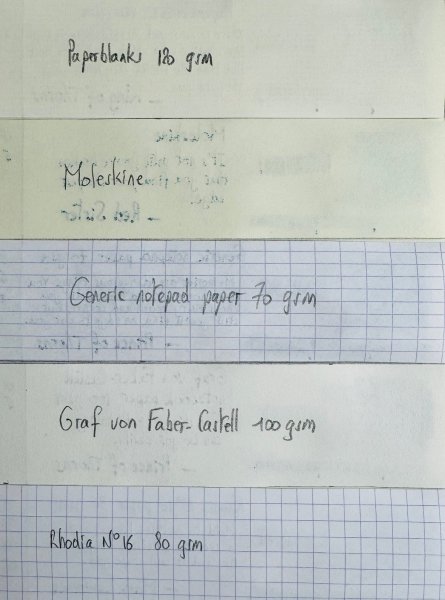 Paperblanks 120 gsm
Moleskine
Generic notepad paper 70 gsm
Graf von Faber-Castell 100 gsm
Rhodia N°16 80 gsm